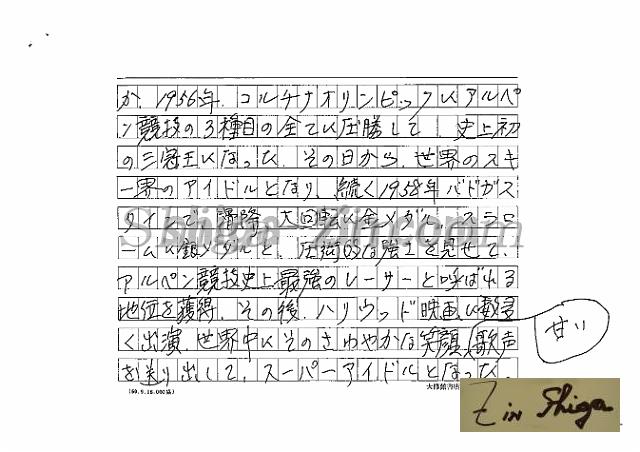 が、1956年、コルチナオリンピックでアルペ
ン競技の3種目の全てに圧勝して、史上初
の三冠王になった。その日から、世界のスキ
ー界のアイドルとなり、続く1958年バドガス
タインで、滑降、大回転に金メダル、スラロ
ームに銀メダルと、圧倒的な強さを見せて、
アルペン競技史上最強のレーサーと呼ばれる
地位を獲得、その後、ハリウッド映画に数多
く出演、世界中にそのさわやかな笑顔、歌声
甘い
を送り出して、スーパーアイドルとなった。
Shiga-Zin.com
Z in Shiga